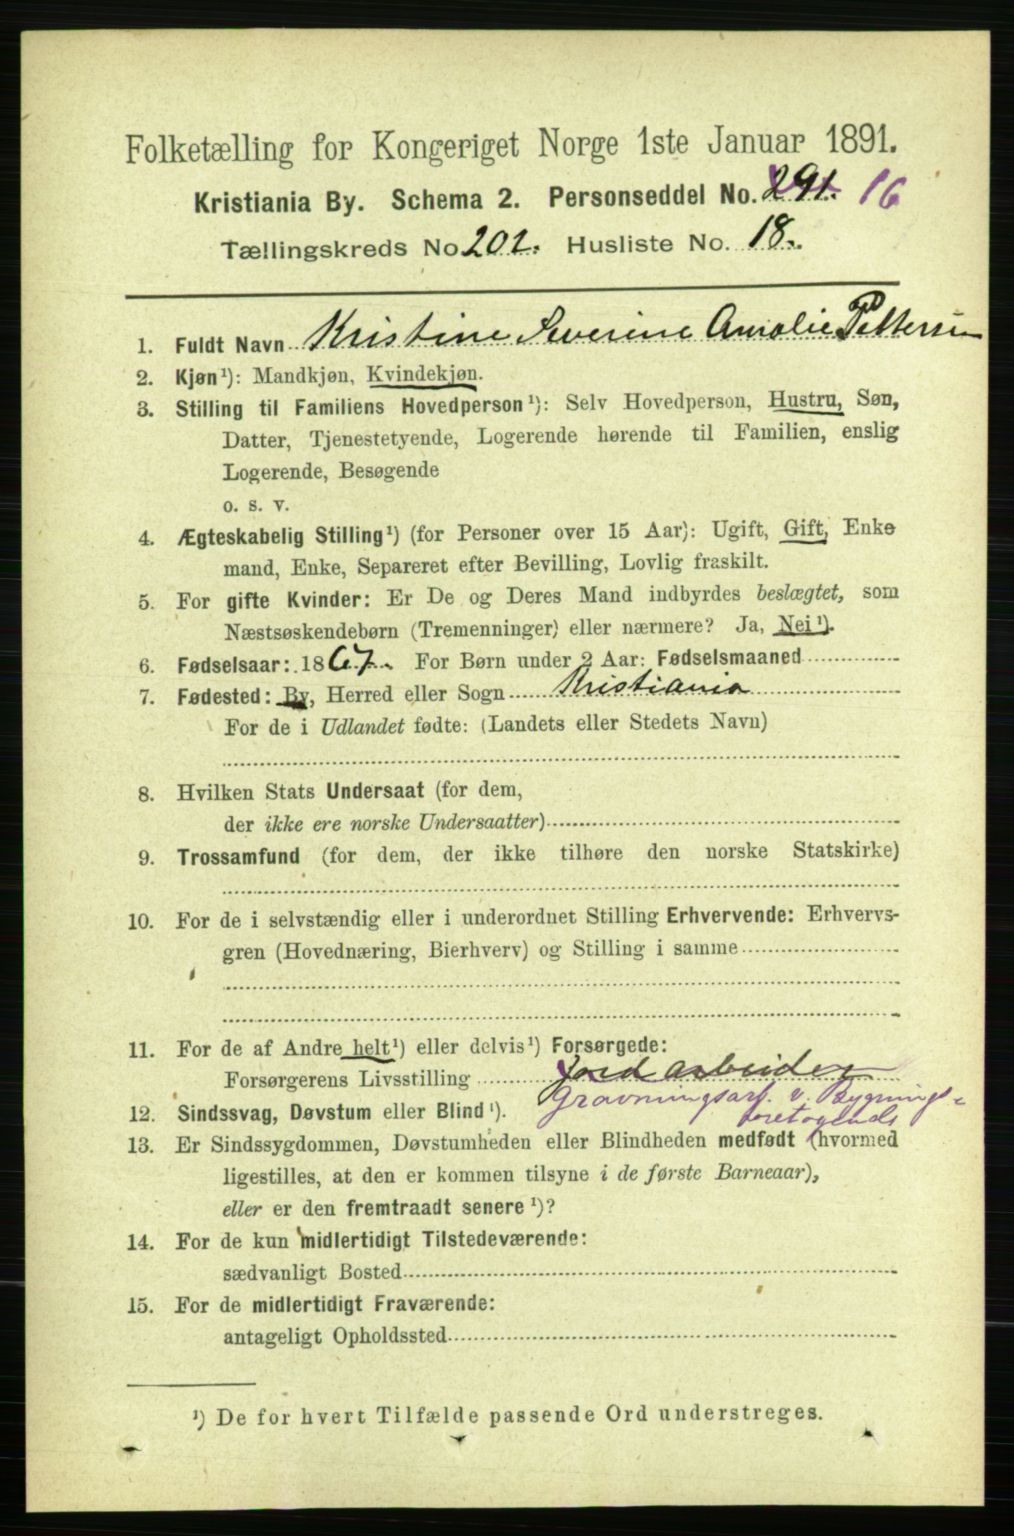 Folketælling for Kongeriget Norge 1ste Januar 1891.
Kristiania By. Schema 2. Personseddel No. 291. 16
Tællingskreds No. 202. Husliste No. 18.
1. Fuldt Navn Kristine Severine Amalie Pettersen
2. Kjøn¹): Mandkjøn, Kvindekjøn.
3. Stilling til Familiens Hovedperson¹): Selv Hovedperson, Hustru, Søn,
Datter, Tjenestetyende, Logerende hørende til Familien, enslig
Logerende, Besøgende
o. s. v.
4. Ægteskabelig Stilling¹) (for Personer over 15 Aar): Ugift, Gift, Enke-
mand, Enke, Separeret efter Bevilling, Lovlig fraskilt.
5. For gifte Kvinder: Er De og Deres Mand indbyrdes beslægtet, som
Næstsøskendebørn (Tremenninger) eller nærmere? Ja, Nei¹).
6. Fødselsaar: 1867. For Børn under 2 Aar: Fødselsmaaned
7. Fødested: By, Herred eller Sogn Kristiania
For de i Udlandet fødte: (Landets eller Stedets Navn)
8. Hvilken Stats Undersaat (for dem,
der ikke ere norske Undersaatter)
9. Trossamfund (for dem, der ikke tilhøre den norske Statskirke)
10. For de i selvstændig eller i underordnet Stilling Erhvervende: Erhvervs-
gren (Hovednæring, Bierhverv) og Stilling i samme
11. For de af Andre helt¹) eller delvis¹) Forsørgede:
Forsørgerens Livsstilling Jord arbeider
Gravningsarb. v. Bygnings-
foretagende
12. Sindssvag, Døvstum eller Blind¹).
13. Er Sindssygdommen, Døvstumheden eller Blindheden medfødt (hvormed
ligestilles, at den er kommen tilsyne i de første Barneaar),
eller er den fremtraadt senere¹)?
14. For de kun midlertidigt Tilstedeværende:
sædvanligt Bosted
15. For de midlertidigt Fraværende:
antageligt Opholdssted
¹) De for hvert Tilfælde passende Ord understreges.